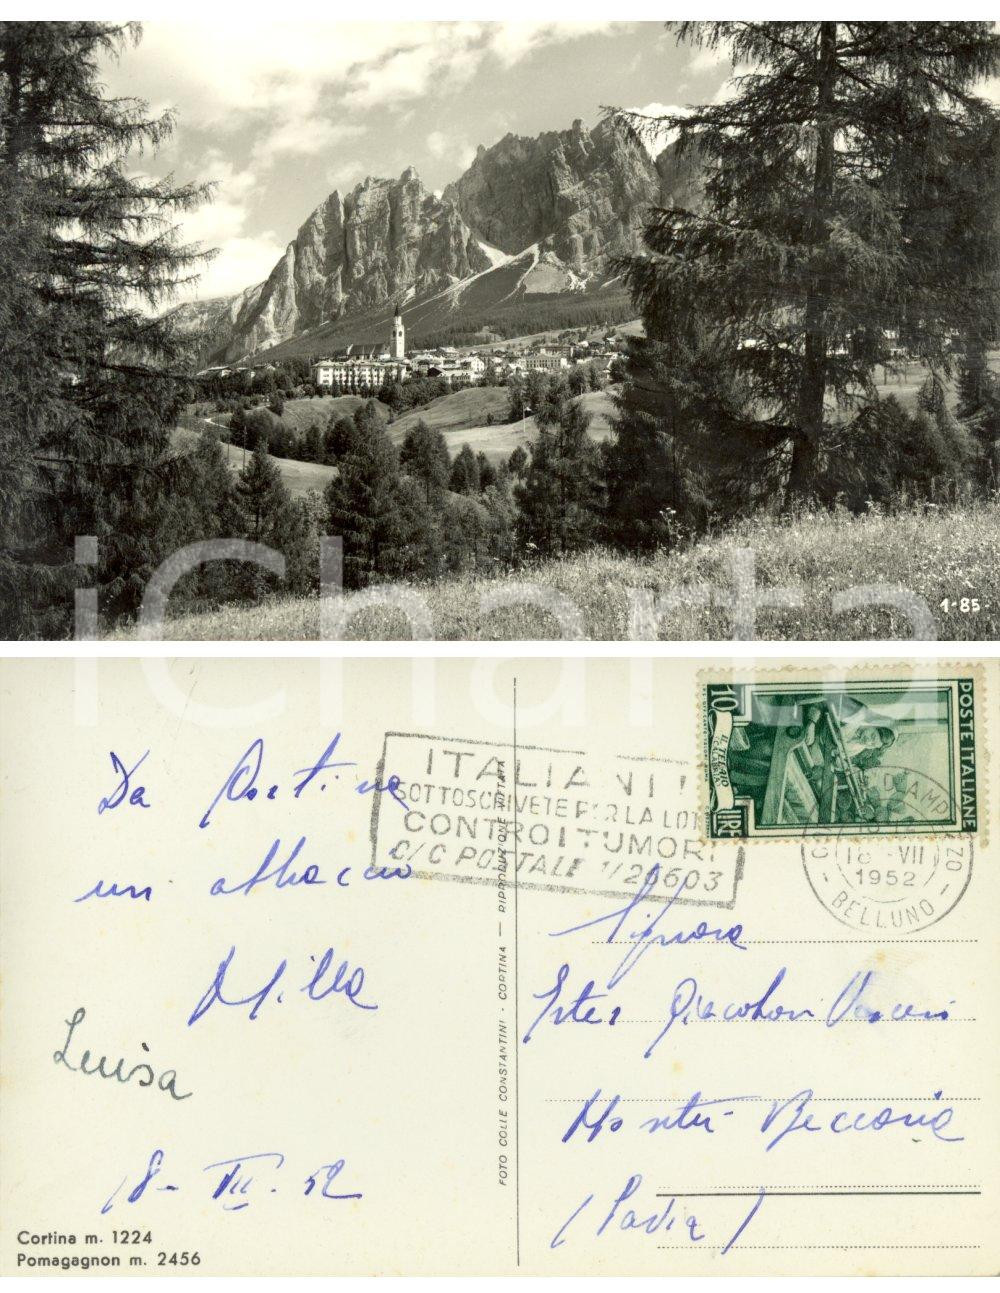 1-85
iCharta
Da Cortina
un abbraccio
Milla
Luisa
18- VII. 52
Cortina m. 1224
Pomagagnon m. 2456
FOTO COLLE CONSTANTINI - CORTINA — RIPRODUZIONE VIETATA
ITALIANI!
SOTTOSCRIVETE PER LA LOT
CONTRO I TUMORI
C/C POSTALE 1/20603
10
LIRE
POSTE ITALIANE
IL TELAIO
D'AMP
ZZO
18 -VII
1952
- BELLUNO -
Signora
Ester
Montù Beccaria
(Pavia)